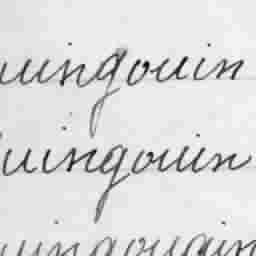 uingouin
uingouin